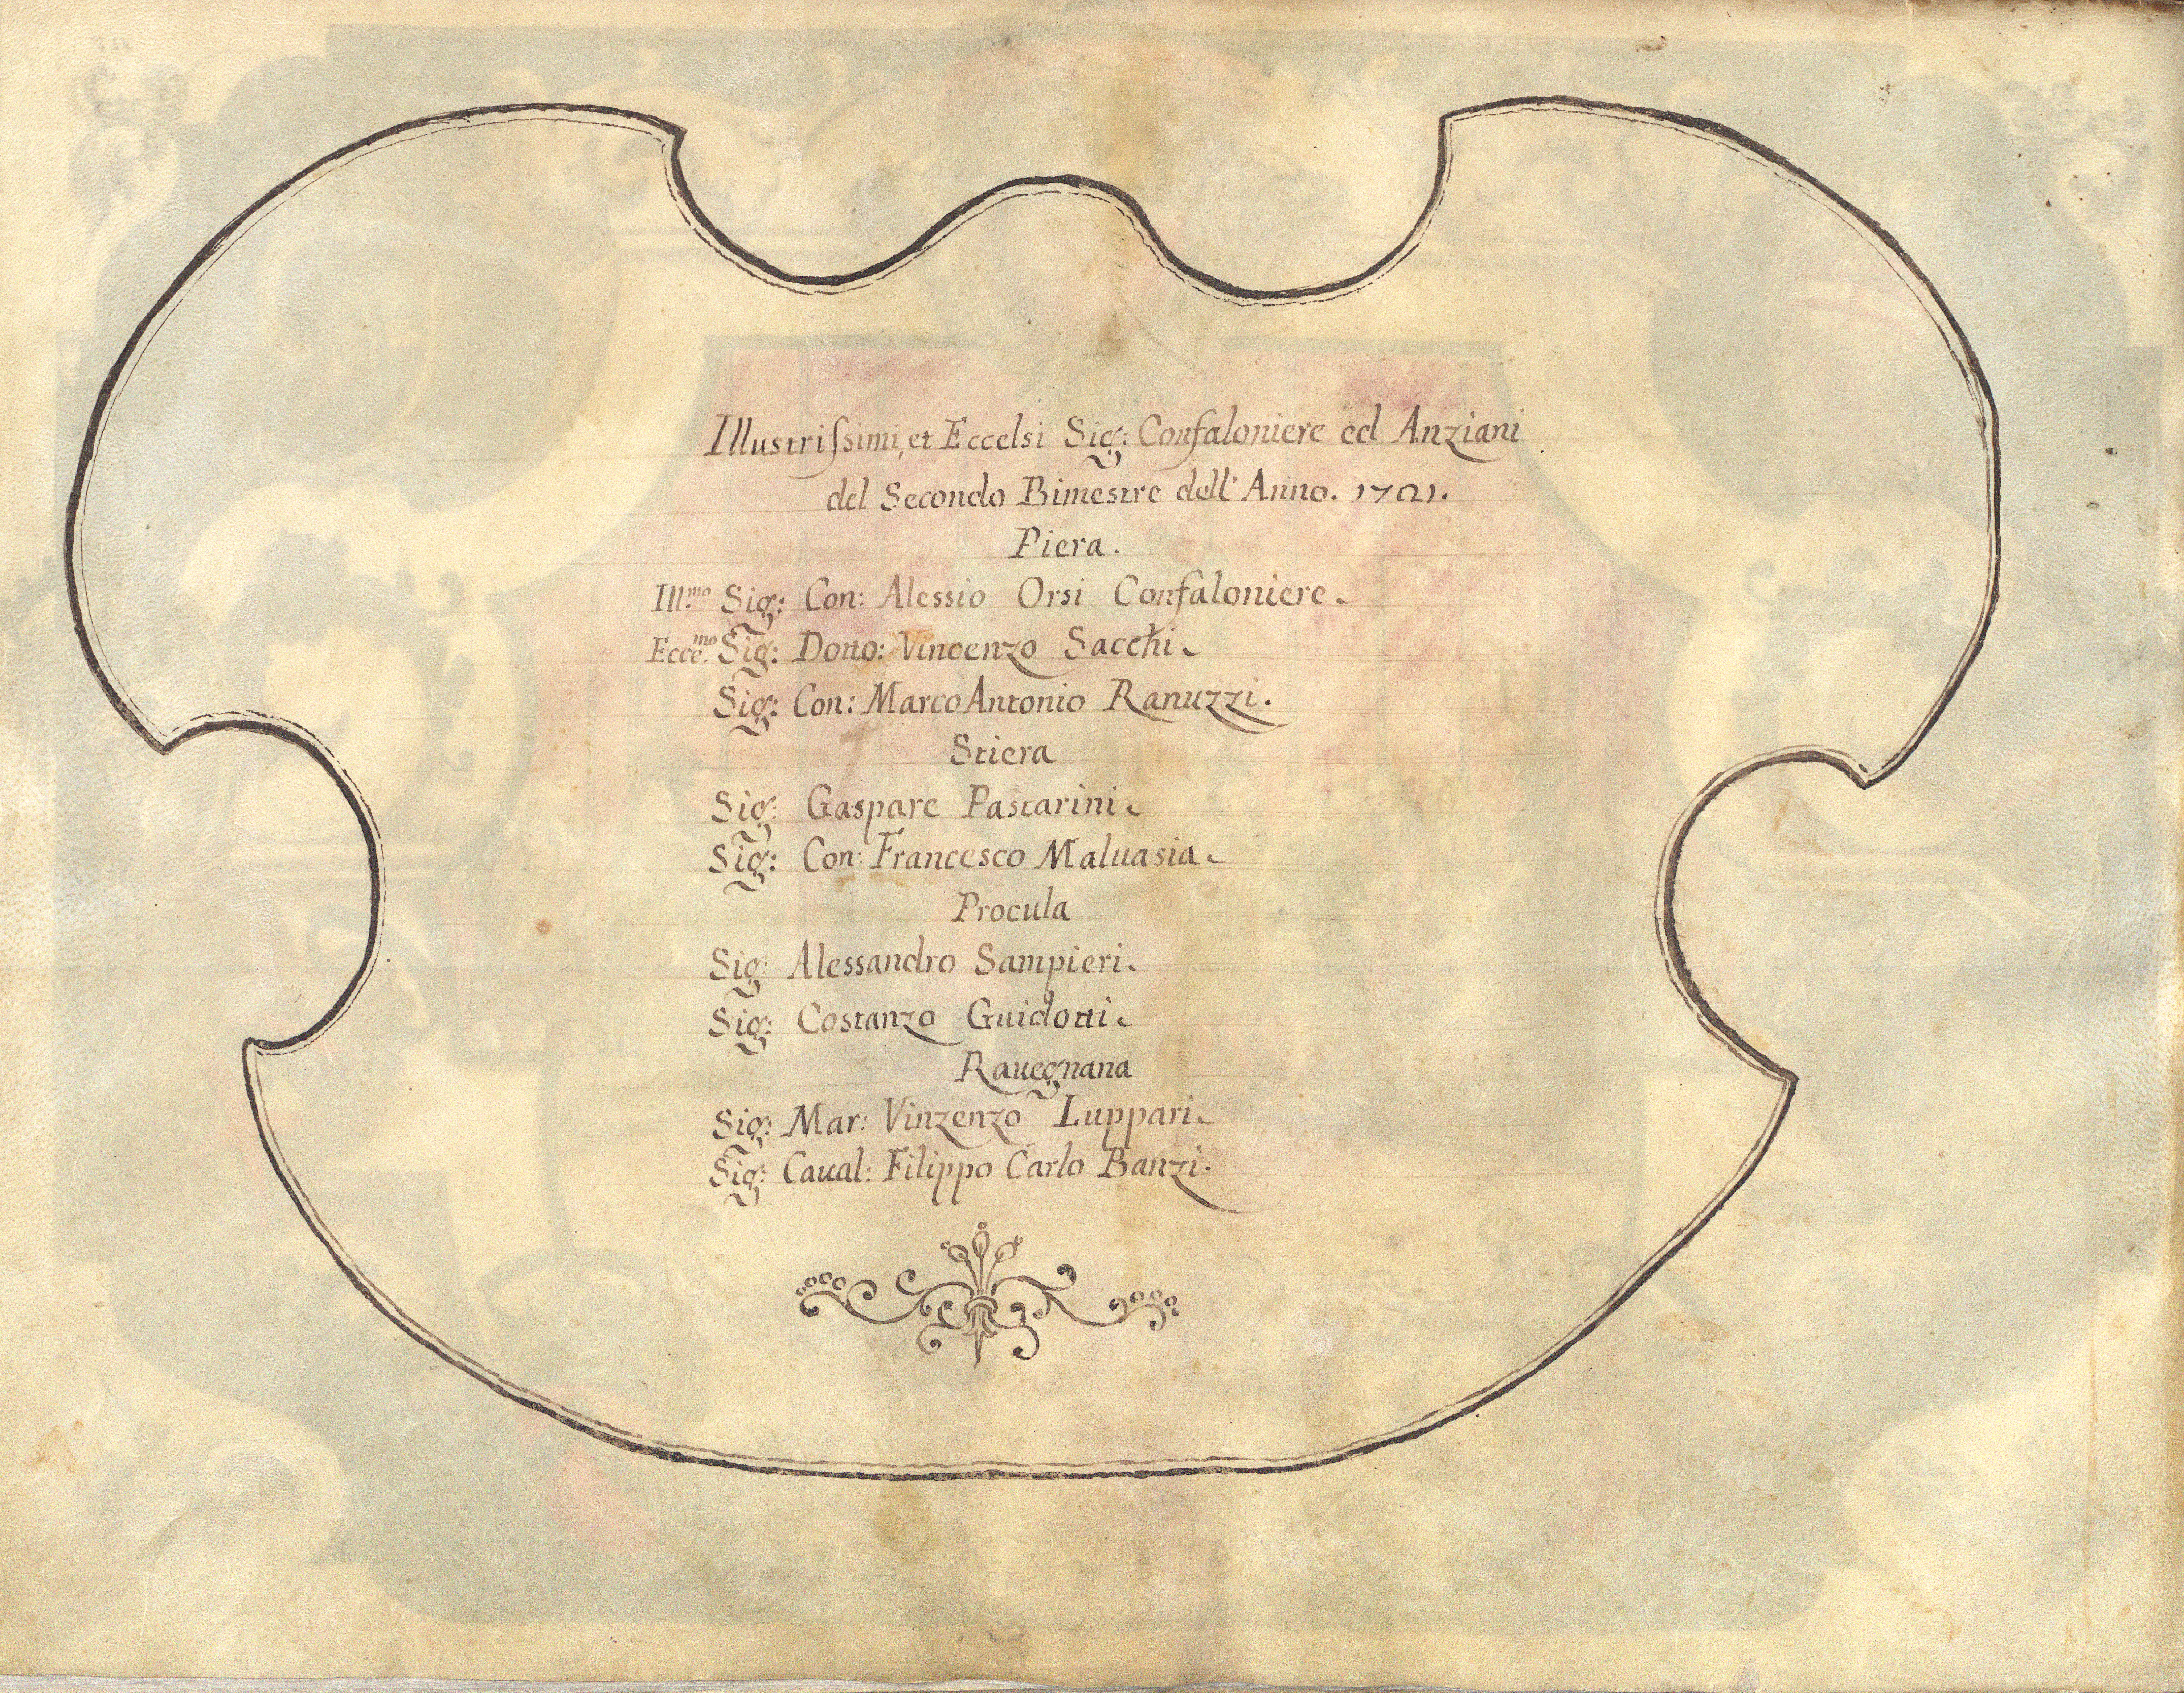 Illustriſsimi, et Eccelsi Sig: Confaloniere ed Anziani
del Secondo Bimestre dell' Anno. 1701.
Piera.
Ill.mo Sig: Con: Alessio Orsi Confaloniere.
Ecce.mo Sig: Dotto: Vincenzo Sacchi.
Sig: Con: Marco Antonio Ranuzzi.
Stiera
Sig: Gaspare Pastarini.
Sig: Con: Francesco Maluasia.
Procula
Sig: Alessandro Sampieri.
Sig: Costanzo Guidotti.
Rauegnana
Sig: Mar: Vinzenzo Luppari.
Sig: Caual: Filippo Carlo Banzi.